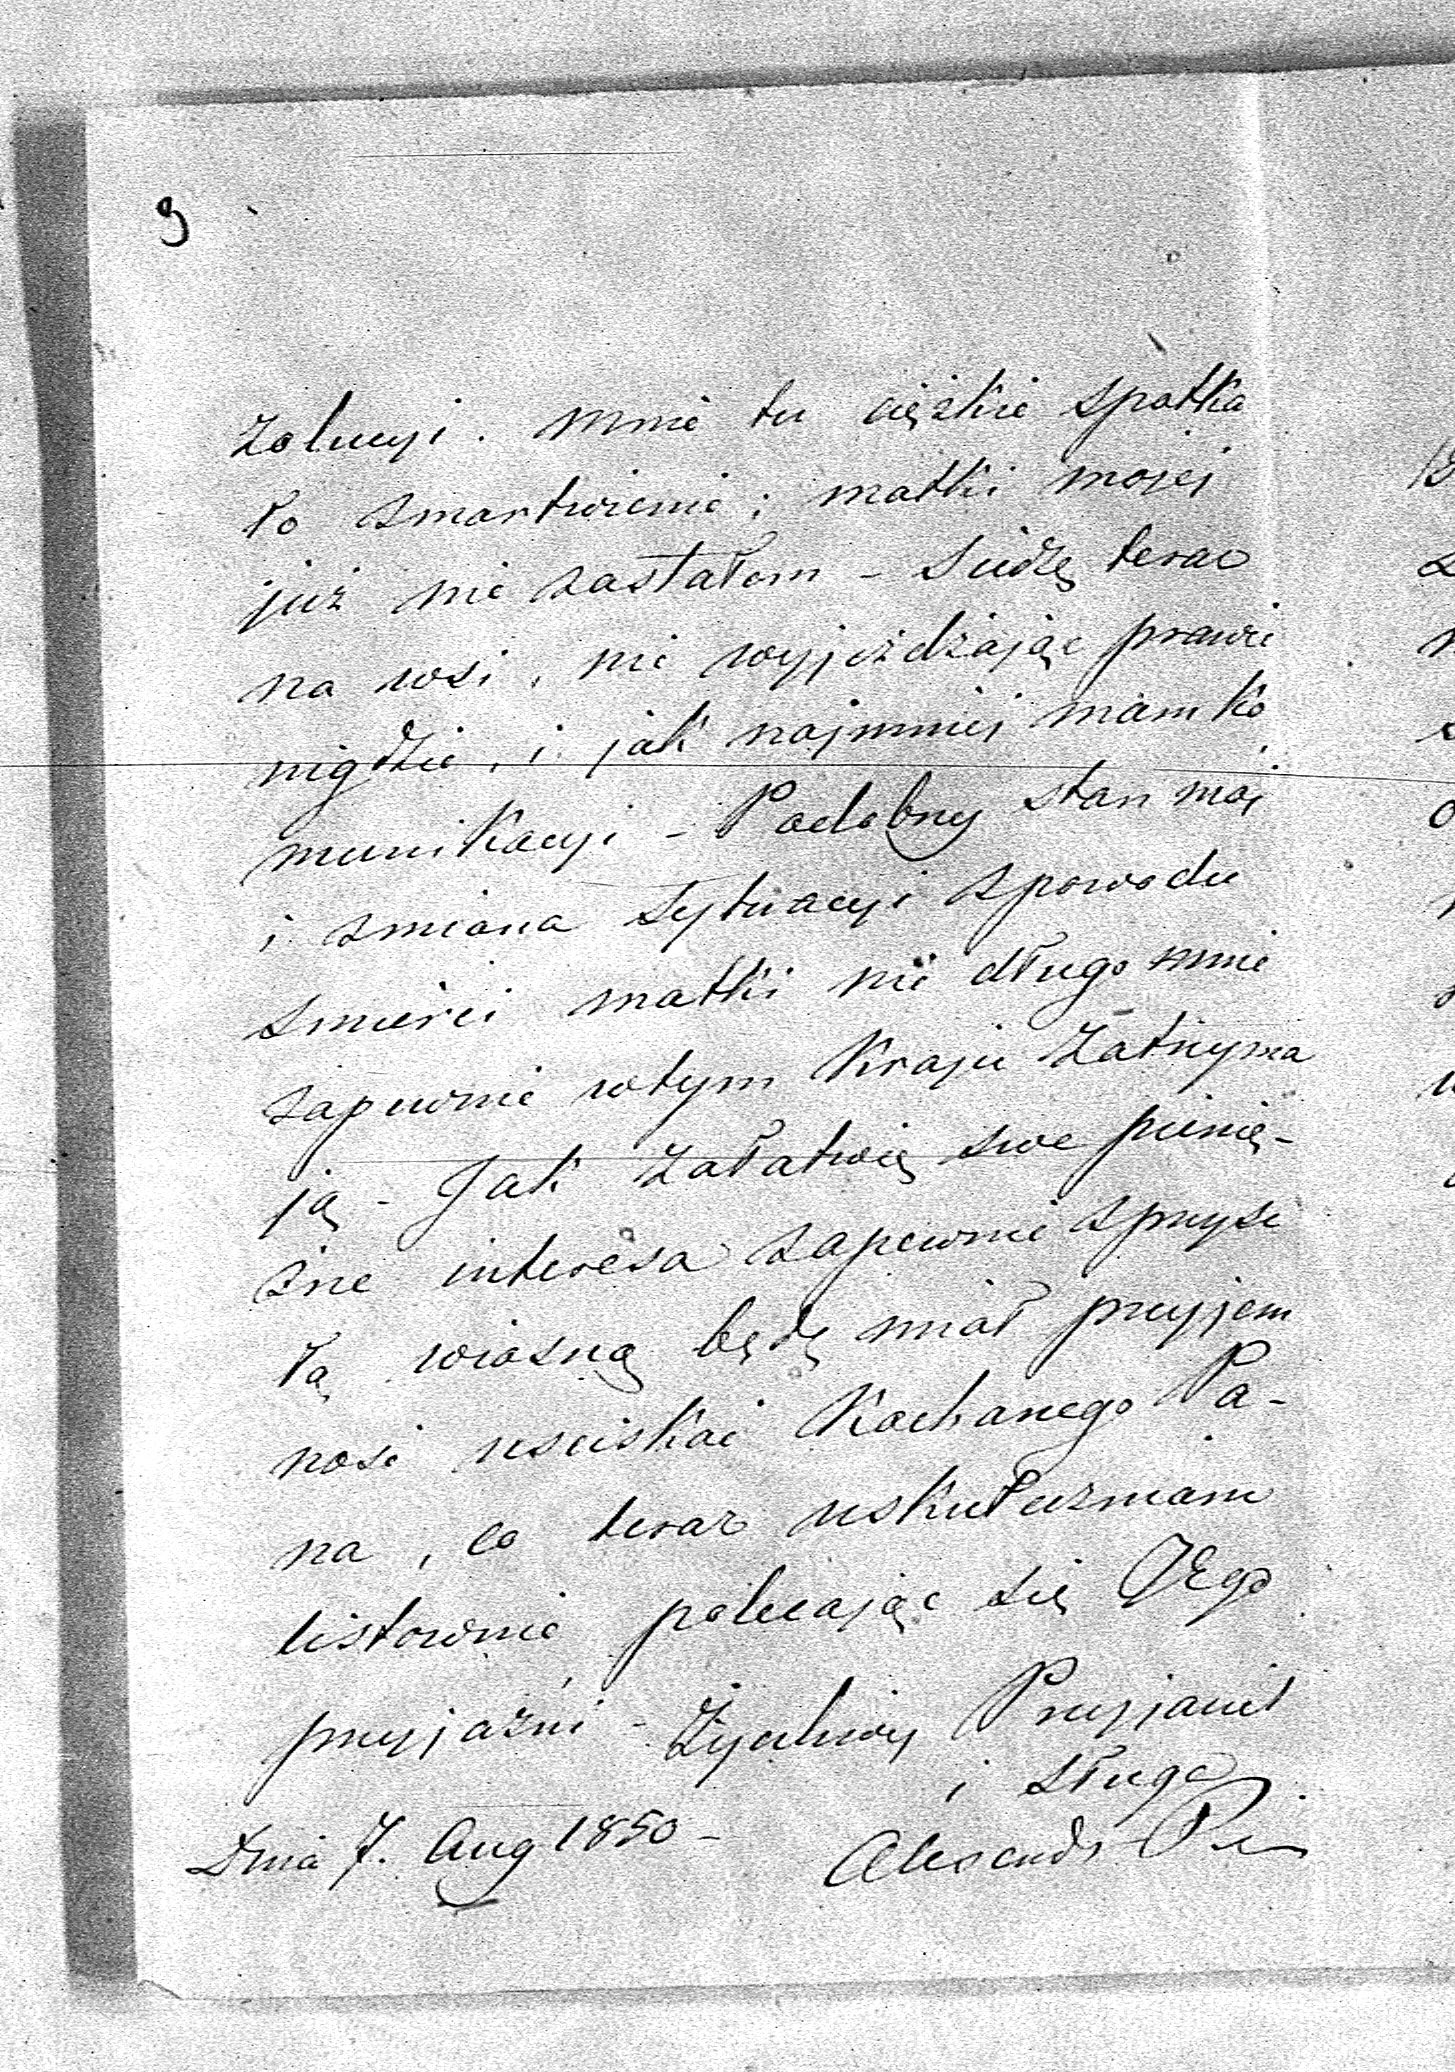 9
zolucyi. Mnie tu cięzkie spotka
ło zmartwienie; matki mojej
już nie zastałem – Siedzę teraz
na wsi, nie wyjeżdżając prawie
nigdzie, i jak najmniej mam ko
munikacyi – Podobny stan mój
i zmiana sytuacyi z powodu
smierci matki nie długo mnie
zapewnie w tym Kraju zatrzyma
ją – Jak załatwię swe pienię-
żne interesa zapewnie z przysz
łą wiosną będę miał przyjem
nosc uściskać Kochanego Pa-
na, co teraz uskuteczniam
listownie polecając się JEgo
przyjaźni – Życzliwy Przyjaciel
i sługa
Dnia 7. Aug 1850 –